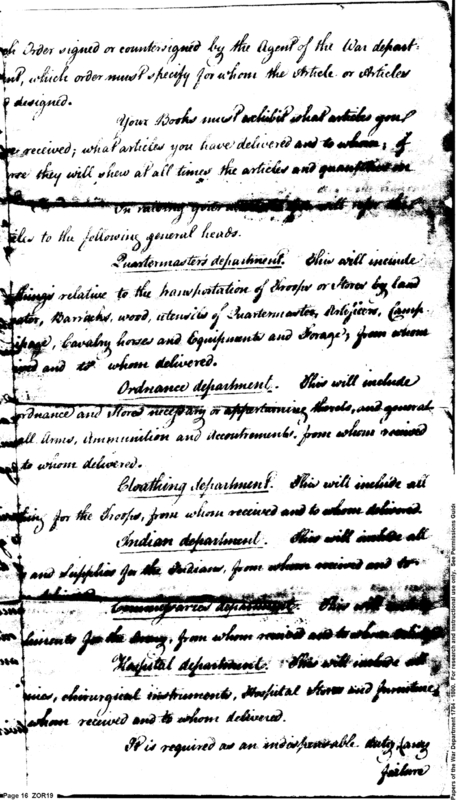 Order signed or countersigned by the Agent of the War depart-
, which order must specify for whom the Article or Articles
designed.
Your Books must exhibit what articles you
received; what articles you have delivered and to whom; &
they will shew at all times the articles and quantities on
In
to the following general heads.
Quartermasters department. This will include
things relative to the transportation of Troops or Stores by land
, Barracks, wood, utensils of Quartermaster, Artificers, Camp
, Cavalry horses and Equipments and Forage, from whom
and to whom delivered.
Ordnance department. This will include
ordnance and Stores necessary or appertaining thereto, and general
all Arms, Ammunition and Accoutrements. from whom received
to whom delivered.
Cloathing department. This will include all
for the Troops, from whom received and to whom delivered.
Indian department. This will include all
and supplies for the Indians, from whom received and to
department. This will
for the Army, from whom received and to whom
Hospital department. This will include all
, chirurgical instruments, Hospital Stores and furniture,
whom received and to whom delivered.
It is required as an indispensable duty (any
failure
Page 16 ZOR19
Papers of the War Department 1784 - 1800. For research and instructional use only. See Permissions Guide